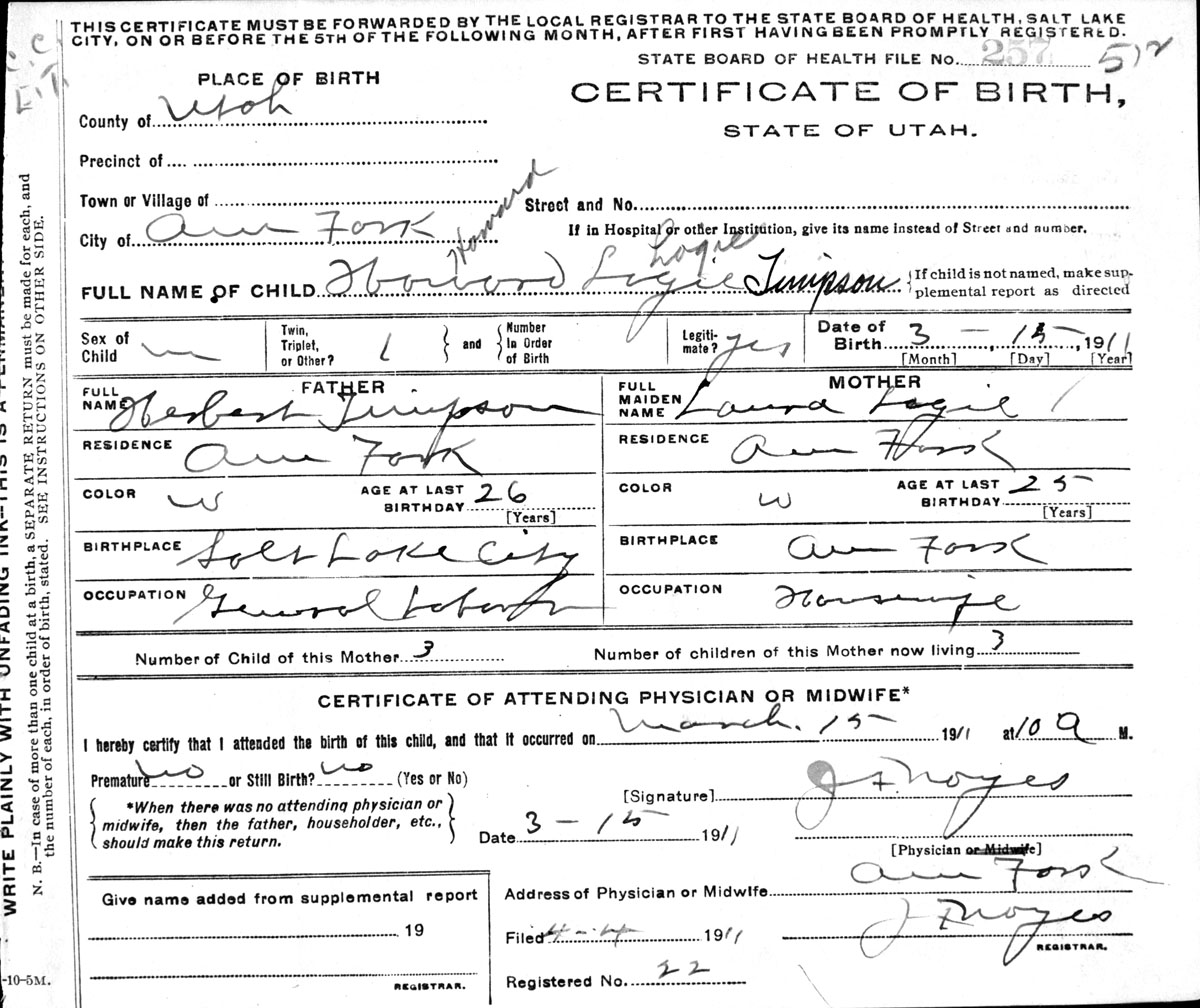 THIS CERTIFICATE MUST BE FORWARDED BY THE LOCAL REGISTRAR TO THE STATE BOARD OF HEALTH, SALT LAKE
CITY, ON OR BEFORE THE 5TH OF THE FOLLOWING MONTH, AFTER FIRST HAVING BEEN PROMPTLY REGISTERED.
STATE BOARD OF HEALTH FILE No. 257 512
PLACE OF BIRTH
CERTIFICATE OF BIRTH,
STATE OF UTAH.
County of Utah
Precinct of
Town or Village of
Street and No.
City of Am Fork
If in Hospital or other Institution, give its name instead of Street and number.
Howard Logie
FULL NAME OF CHILD Howard Logie Timpson
{If child is not named, make sup-
plemental report as directed
Sex of Child m
Twin, Triplet, or Other? 1
and
Number In Order of Birth
Legiti-mate? yes
Date of Birth 3 - 15, 1911
[Month] [Day] [Year]
FATHER
MOTHER
FULL NAME Herbert Timpson
FULL MAIDEN NAME Laura Logie
RESIDENCE Am Fork
RESIDENCE Am Fork
COLOR W
AGE AT LAST BIRTHDAY 26
[Years]
COLOR W
AGE AT LAST BIRTHDAY 25
[Years]
BIRTHPLACE Salt Lake City
BIRTHPLACE Am Fork
OCCUPATION General Laborer
OCCUPATION Housewife
Number of Child of this Mother 3
Number of children of this Mother now living 3
CERTIFICATE OF ATTENDING PHYSICIAN OR MIDWIFE*
I hereby certify that I attended the birth of this child, and that it occurred on March. 15 1911 at 10 a M.
Premature no or Still Birth? no (Yes or No)
*When there was no attending physician or
midwife, then the father, householder, etc.,
should make this return.
[Signature] J F Noyes
Date 3 - 15 1911
[Physician or Midwife]
Address of Physician or Midwife Am Fork
Give name added from supplemental report
19
REGISTRAR.
Filed 1911
J F Noyes
REGISTRAR.
Registered No. 22
-10-5M.
WRITE PLAINLY WITH UNFADING INK--THIS IS A PERMANENT
N. B.—In case of more than one child at a birth, a SEPARATE RETURN must be made for each, and
the number of each, in order of birth, stated. SEE INSTRUCTIONS ON OTHER SIDE.